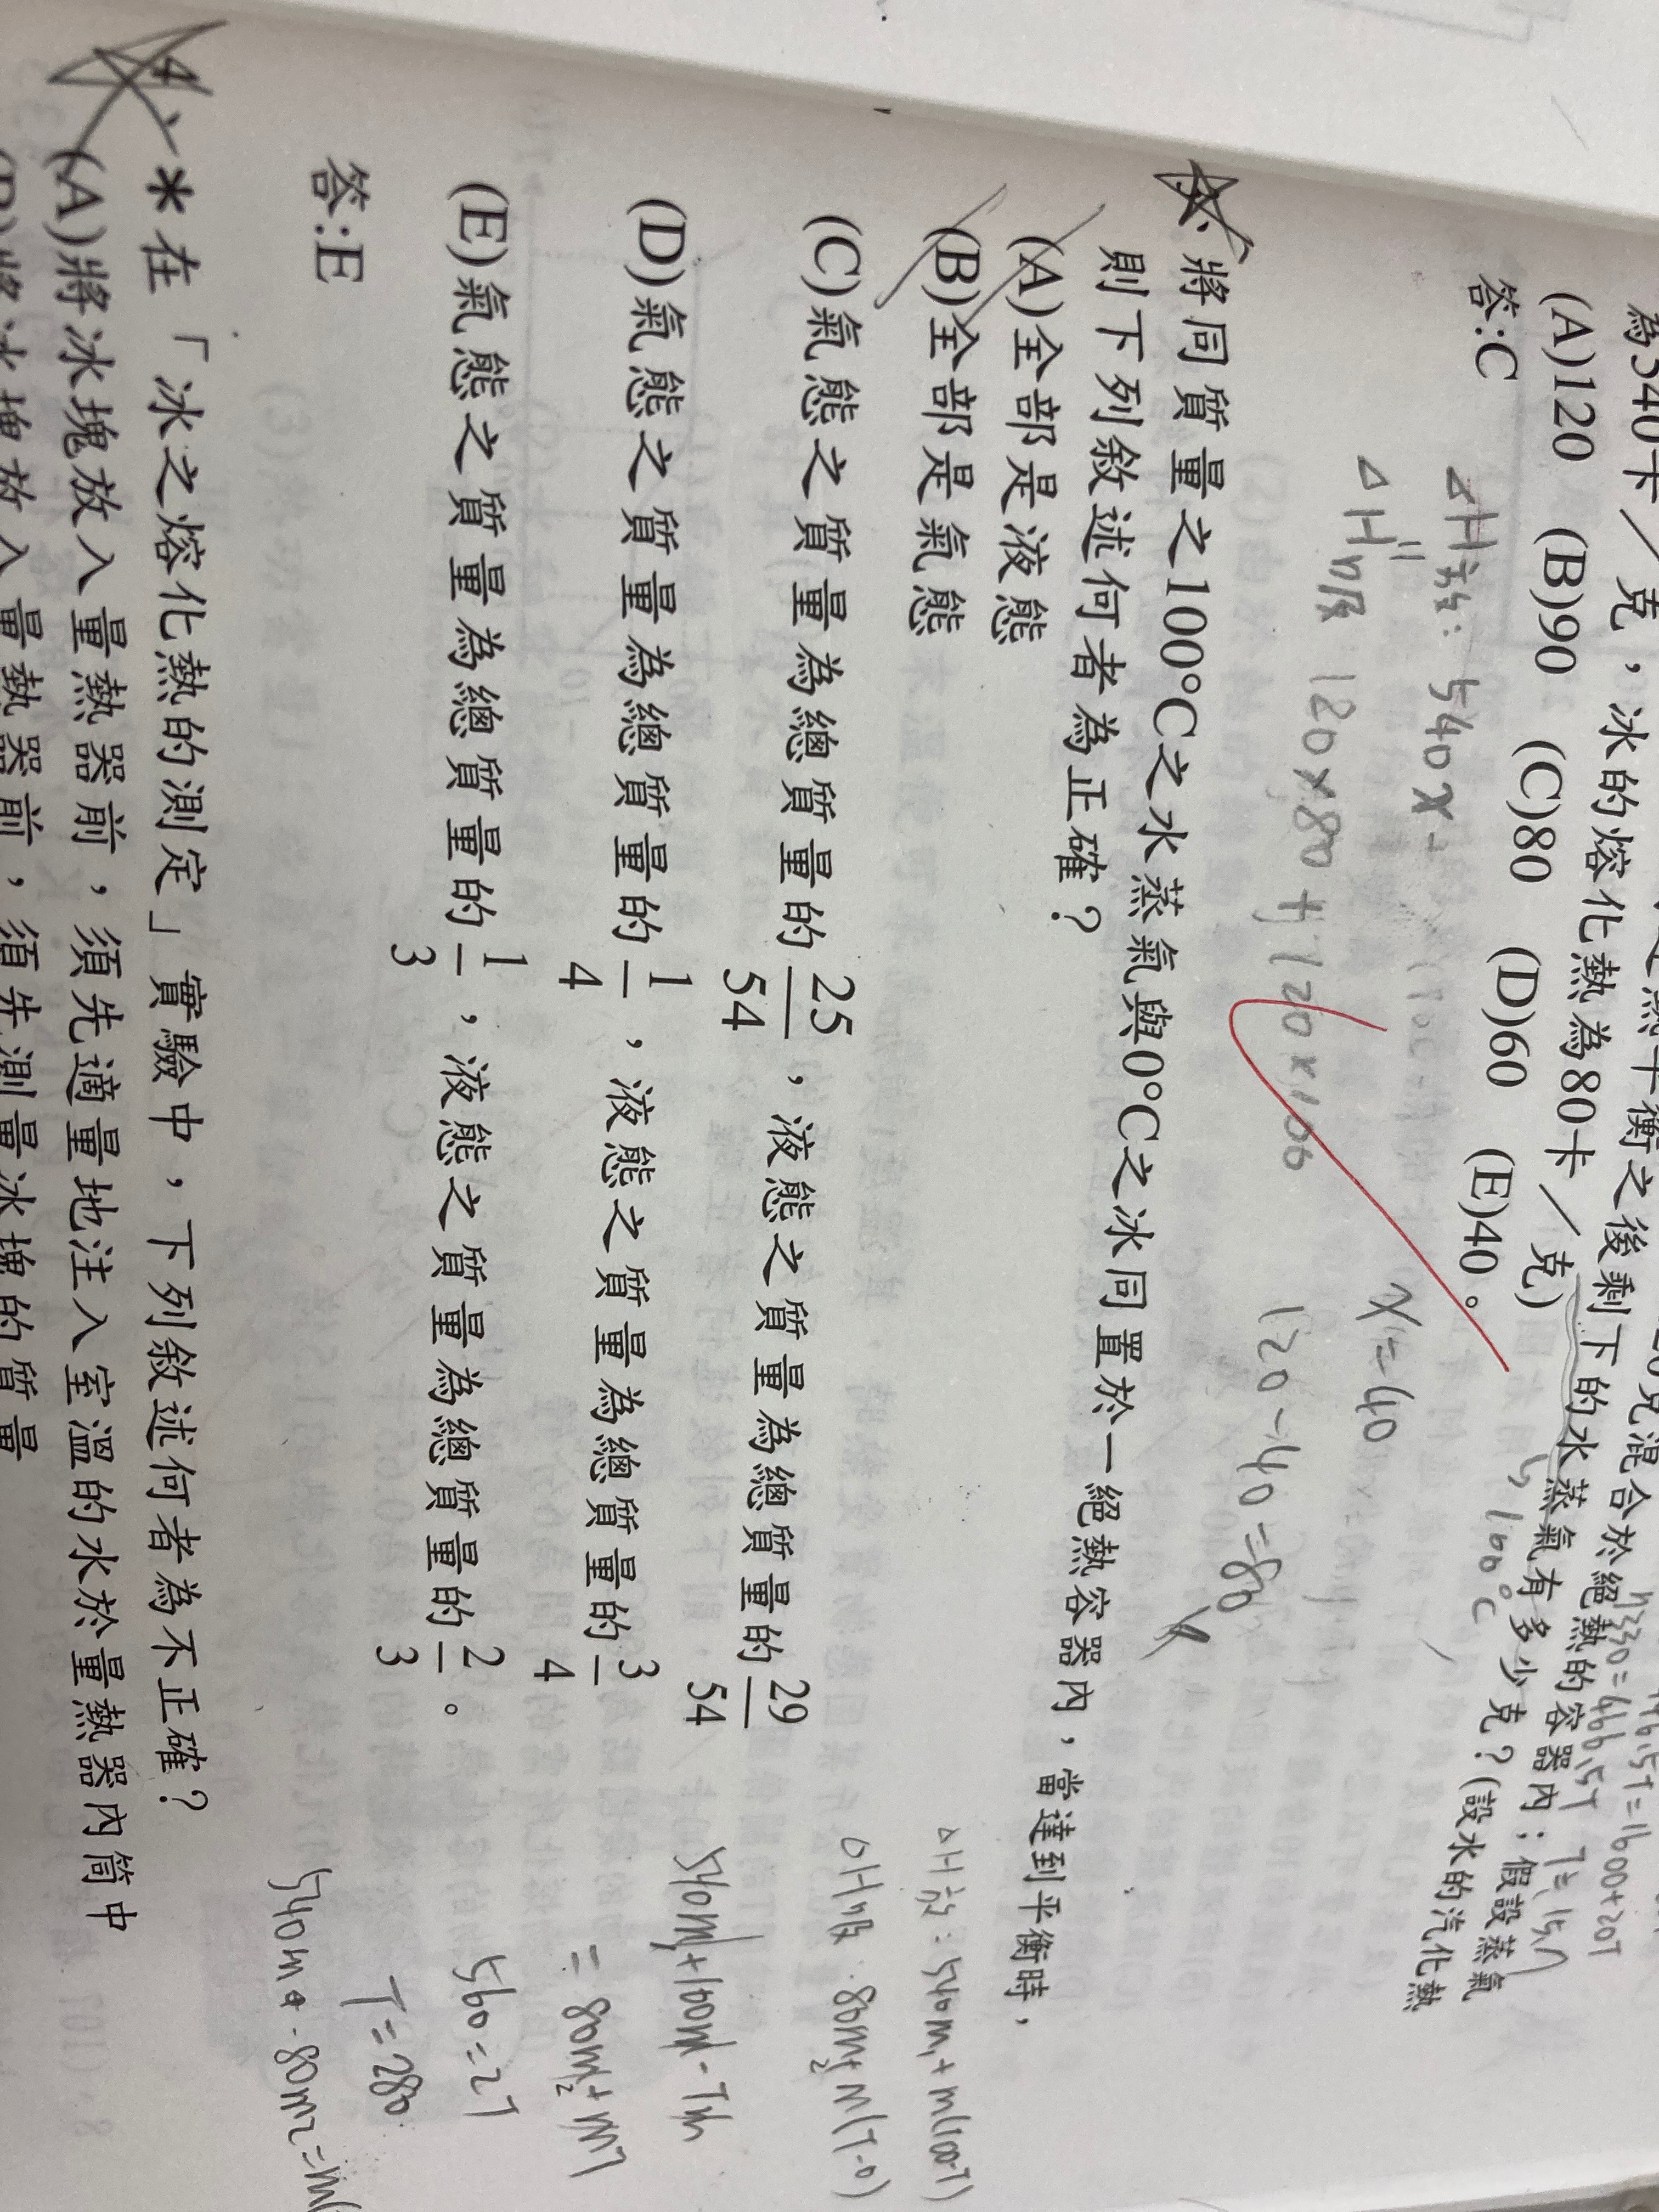 為540卡／克，冰的熔化熱為80卡／克)
(A)120 (B)90 (C)80 (D)60 (E)40。
答:C
ΔH放: 540x
ΔH吸 120×80+120×100
x=40
120-40=80
↳100°C
將同質量之100°C之水蒸氣與0°C之冰同置於一絕熱容器內，當達到平衡時，
則下列敘述何者為正確？
(A)全部是液態
(B)全部是氣態
(C)氣態之質量為總質量的25/54，液態之質量為總質量的29/54
(D)氣態之質量為總質量的1/4，液態之質量為總質量的3/4
(E)氣態之質量為總質量的1/3，液態之質量為總質量的2/3。
答:E
ΔH放: 540m₁+m(100-T)
ΔH吸 80m₂+m(T-0)
540m₁+100m-Tm
=80m₂+mT
560=2T
T=280
＊在「冰之熔化熱的測定」實驗中，下列敘述何者為不正確？
(A)將冰塊放入量熱器前，須先適量地注入室溫的水於量熱器內筒中
(B)將冰塊放入量熱器前，須先測量冰塊的質量